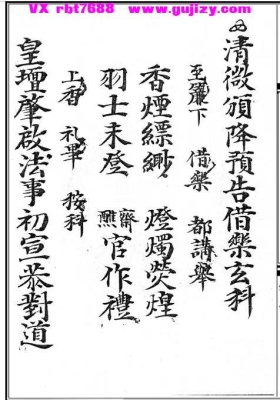 VX rbt7688 www.gujizy.com
清微頒降預告借樂玄科
至簾下 借樂 都講舉
香煙縹緲 燈燭熒煌
羽士未登 齋醮官作禮
上香 礼畢 按科
皇壇肇啟法事初宣恭對道